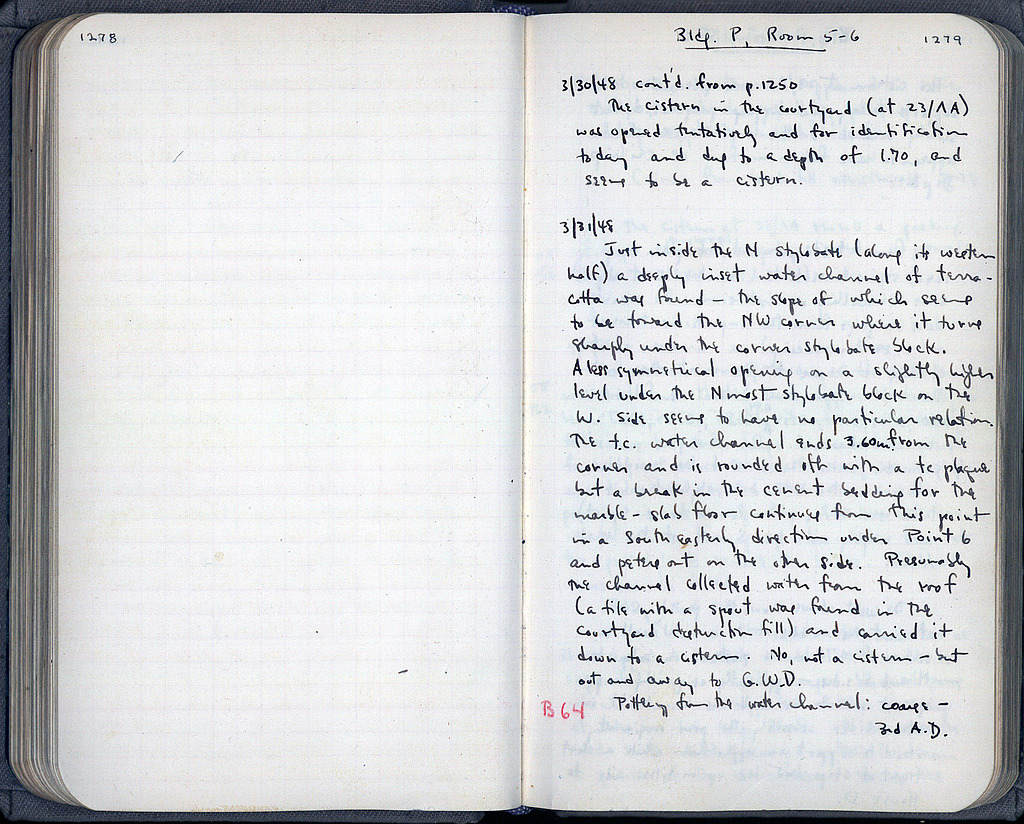 1278
Bldg. P, Room 5-6
1279
3/30/48 cont'd. from p.1250
The cistern in the courtyard (at 23/ΛA)
was opened tentatively and for identification
today and dug to a depth of 1.70, and
seems to be a cistern.
3/31/48
Just inside the N stylobate (along its western
half) a deeply inset water channel of terra-
cotta was found – the slope of which seems
to be toward the NW corner, where it turns
sharply under the corner stylobate block.
A less symmetrical opening on a slightly higher
level under the Nmost stylobate block on the
W. side seems to have no particular relation.
The t.c. water channel ends 3.60m from the
corner and is rounded off with a tc plaque
but a break in the cement bedding for the
marble-slab floor continues from this point
in a Southeasterly direction under Point 6
and peters out on the other side. Presumably
the channel collected water from the roof
(a tile with a spout was found in the
courtyard destruction fill) and carried it
down to a cistern. No, not a cistern – but
out and away to G.W.D.
B 64
Pottery from the water channel: coarse –
3rd A.D.